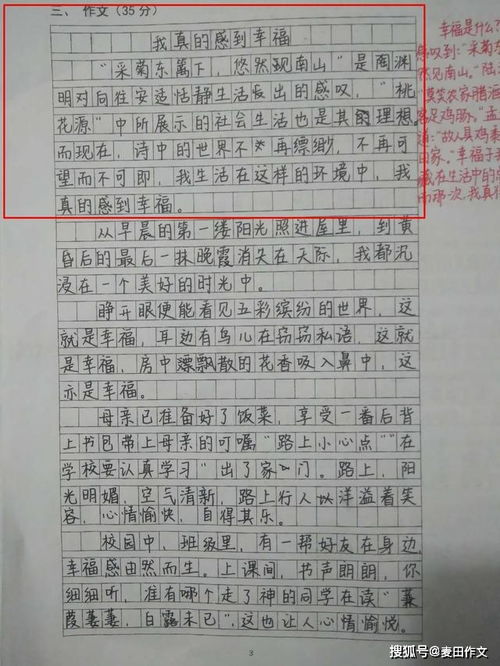 三、作文(35分)
我真的感到幸福
"采菊东篱下，悠然现南山"是陶渊
明对向往安适恬静生活发出的感叹，"桃
花源"中所展示的社会生活也是其理想。
而现在，诗中的世界不再缥缈，不再可
望而不可即，我生活在这样的环境中，我
真的感到幸福。
从早晨的第一缕阳光照进屋里，到黄
昏后的最后一抹晚霞消失在天际，我都沉
浸在一个美好的时光中。
睁开眼便能看见五彩缤纷的世界，这
就是幸福，耳边有鸟儿在窃窃私语，这就
是幸福，房中飘散的花香吸入鼻中，这
亦是幸福。
母亲已准备好了饭菜，享受一番后背
上书包带上母亲的叮嘱"路上小心点""在
学校要认真学习"出了家门。路上，阳
光明媚，空气清新，路上行人以洋溢着笑
容，心情愉快，自得其乐。
校园中，班级里，有一帮好友在身边，
幸福感由然而生。上课间，书声朗朗，你
细细听，准有哪个走了神的同学在读"蒹
葭萋萋，白露未已"，这也让人心情愉悦。
3
幸福是什么?
感叹到："采菊东
然见南山。"陆
"莫笑农家腊酒
客足鸡豚。"孟
道："故人具鸡黍
田家。"幸福于
藏在生活中的
而那一次，我真
搜狐号@麦田作文